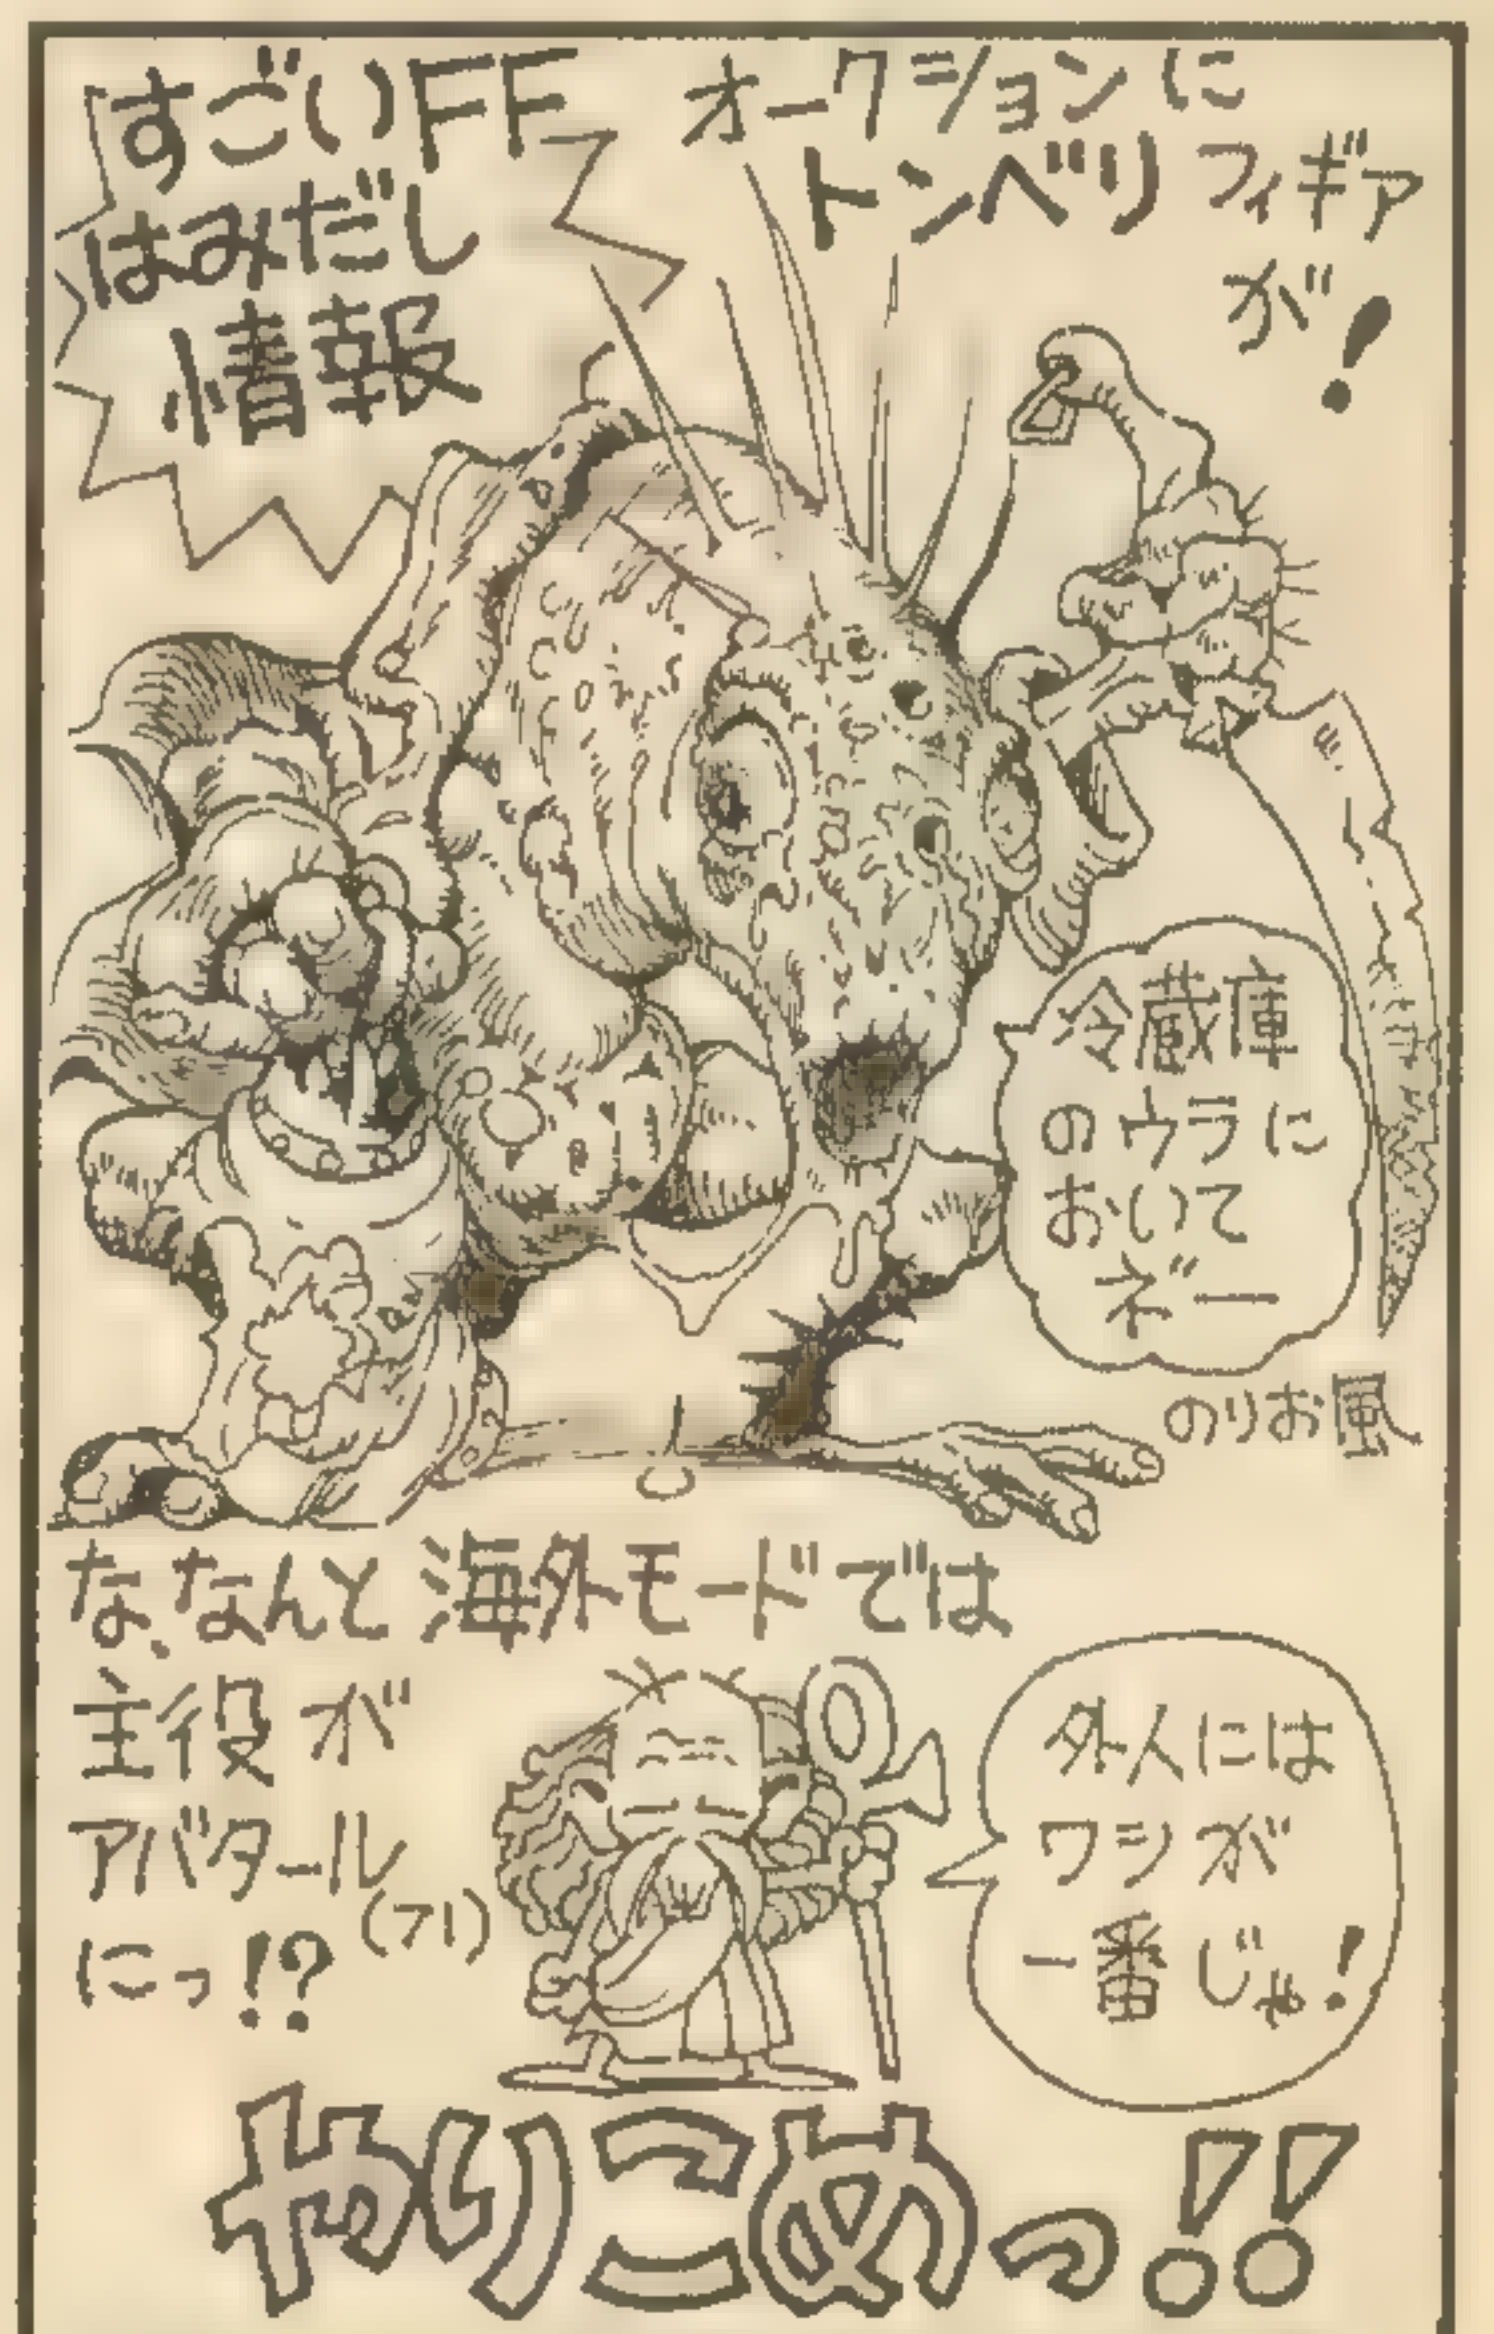 すごいFF
はみだし
情報
オークションに
トンベリフィギア
が!
冷蔵庫
のウラに
おいて
ネ゛ー
のりお風
な、なんと海外モードでは
主役が
アバタール
(フリ)
にっ!?
外人には
ワシが
一番じゃ!
やりこめっ!!